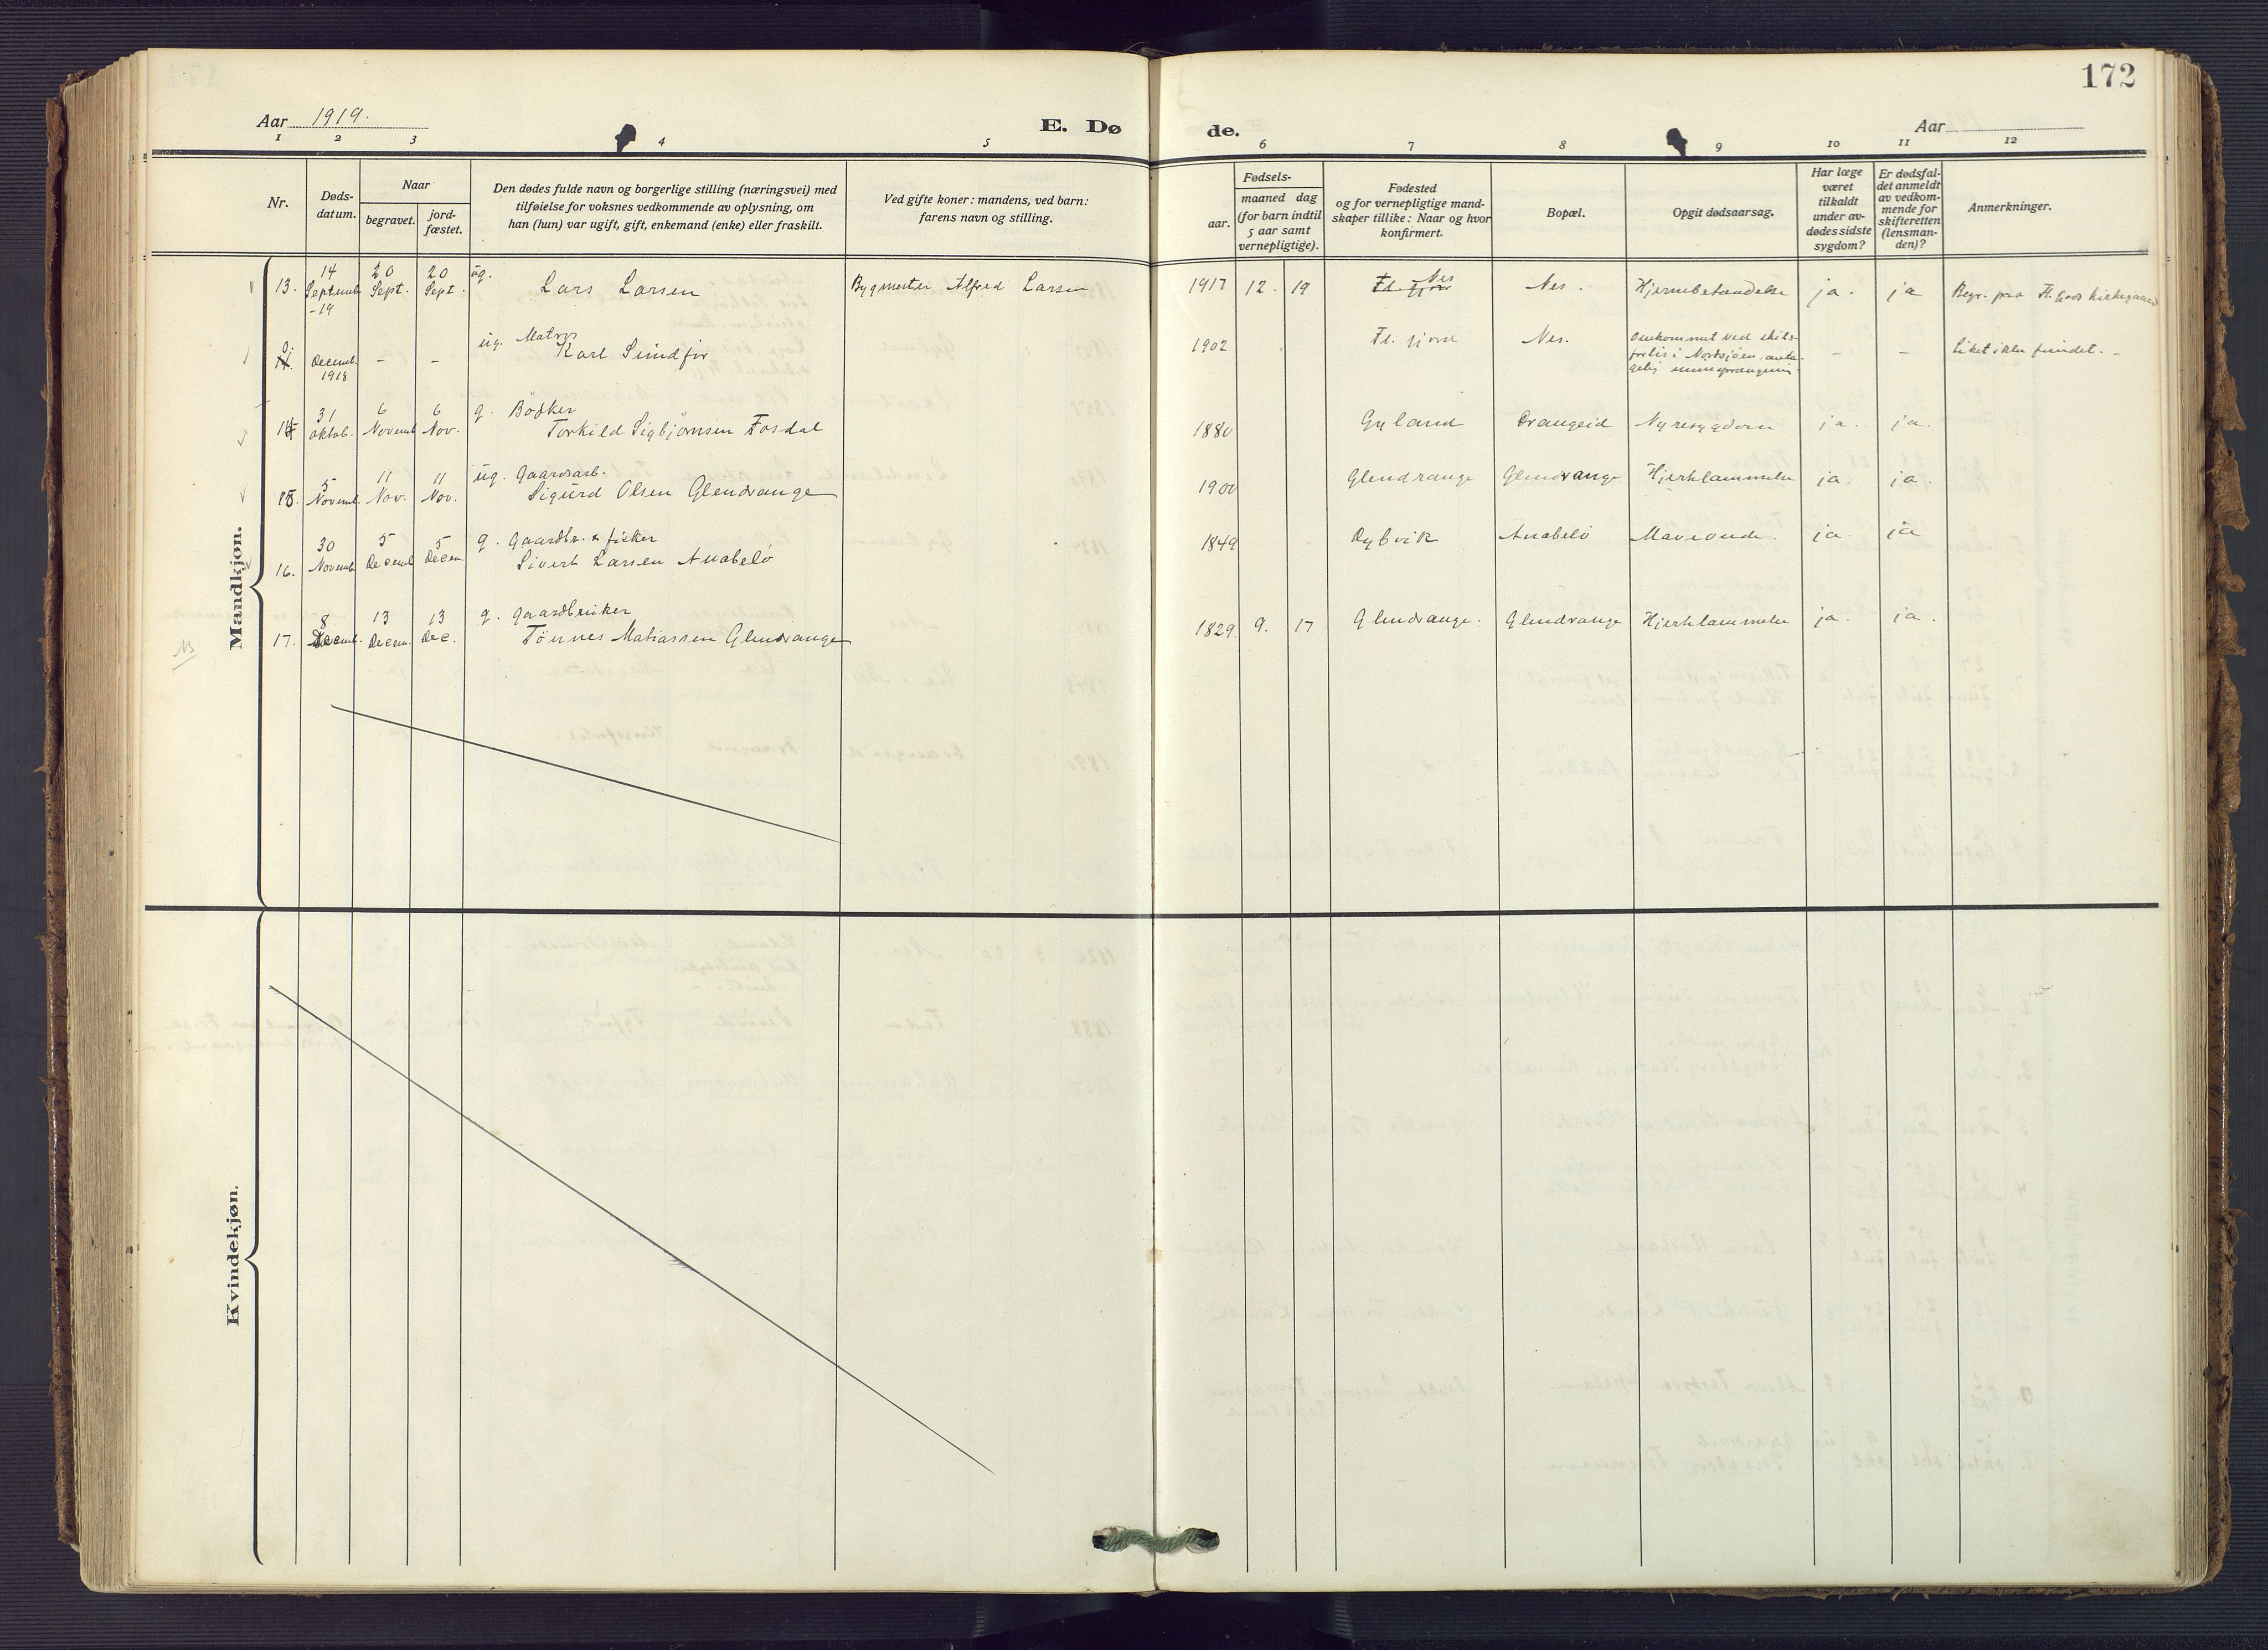 172
Aar 1919.
E. Dø
de.
Aar
1 2 3 4 5 6 7 8 9 10 11 12
Nr.
Døds-
datum.
Naar
begravet.
jord-
fæstet.
Den dødes fulde navn og borgerlige stilling (næringsvei) med
tilføielse for voksnes vedkommende av oplysning, om
han (hun) var ugift, gift, enkemand (enke) eller fraskilt.
Ved gifte koner: mandens, ved barn:
farens navn og stilling.
Fødsels-
aar.
maaned dag
(for barn indtil
5 aar samt
vernepligtige).
Fødested
og for vernepligtige mand-
skaper tillike: Naar og hvor
konfirmert.
Bopæl.
Opgit dødsaarsag.
Har læge
været
tilkaldt
under av-
dødes sidste
sygdom?
Er dødsfal-
det anmeldt
av vedkom-
mende for
skifteretten
(lensman-
den)?
Anmerkninger.
Mandkjøn.
13. 14 Septemb -19 20 Sept. 20 Sept. ug. Lars Larsen Bygmester Alfred Larsen 1917 12. 19 Fl. fjord Nes Nes. Hjernebetændelse ja. ja Begr. paa Fl. fjords kirkegaard
0. Decemb. 1918 - - ug. Matros
Karl Sundfor 1902 Fl. fjord Nes. Omkommet ved skibs-
forlis i Nordsjøen, anta-
gelig minesprængning. - - Liket ikke fundet. -
14. 31 oktob. 6 Novemb 6 Nov. g. Bödker
Torkild Sigbjörnsen Fosdal 1880 Gyland Drangeid Nyresygdom ja. ja.
15. 5 Novemb. 11 Nov. 11 Nov. ug. Gaardsarb.
Sigurd Olsen Glendrange 1900 Glendrange Glendrange Hjertelammelse ja. ja.
16. 30 Novemb 5 Decemb 5 Decem. g. Gaardbr. & fisker
Sivert Larsen Anabelö 1849 Dybvik Anabelö Maveonde. ja. ja
17. 8 Decemb. 13 Decem. 13 Dec. g. Gaardbruker
Tönnes Matiassen Glendrange 1829. 9. 17 Glendrange. Glendrange Hjertelammelse ja. ja.
Kvindekjøn.